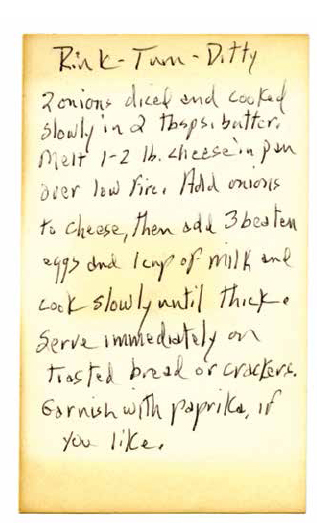 Rink-Tum-Ditty
2 onions diced and cooked
slowly in 2 tbsps. butter.
Melt 1-2 lb. cheese in pan
over low fire. Add onions
to cheese, then add 3 beaten
eggs and 1 cup of milk and
cook slowly until thick.
Serve immediately on
toasted bread or crackers.
Garnish with paprika, if
you like.